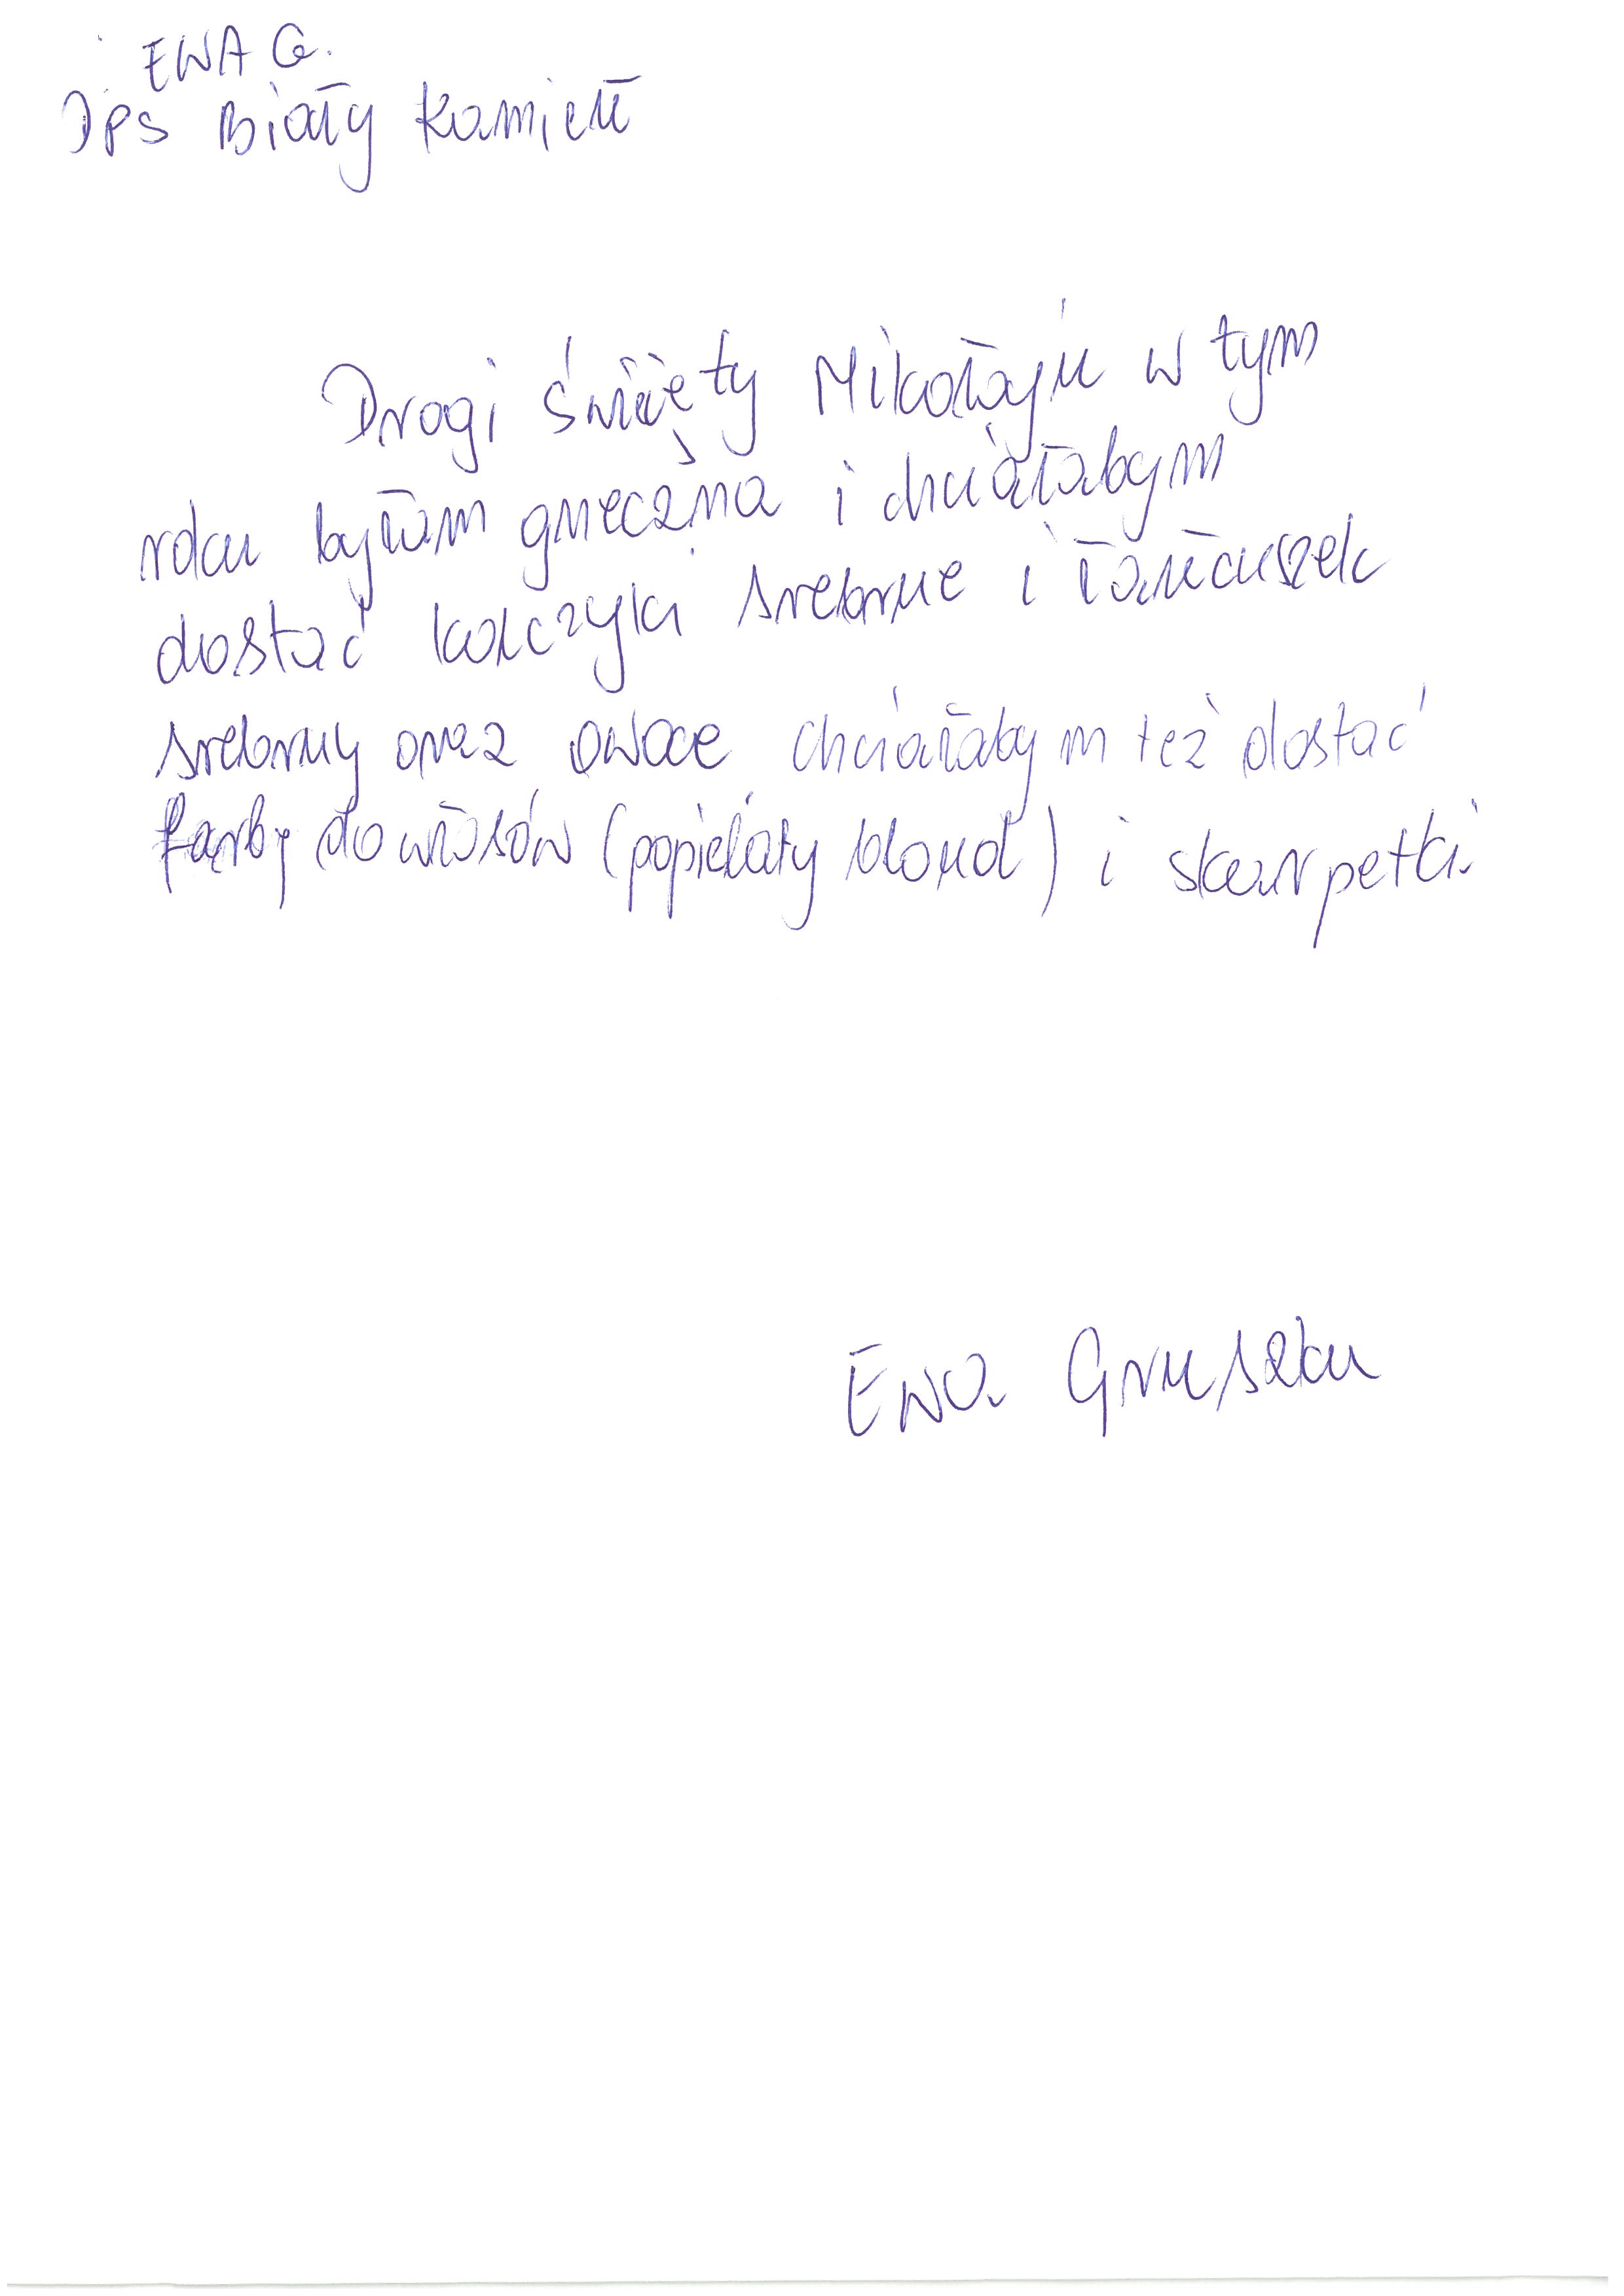 EWA G.
DPS Biały Kamień
Drogi święty Mikołaju w tym
roku byłam grzeczna i chciałabym
dostać kolczyki srebrne i łańcuszek
srebrny oraz owoce chciałabym też dostać
farby do włosów (popielaty blond) i skarpetki
Ewa Gruszka